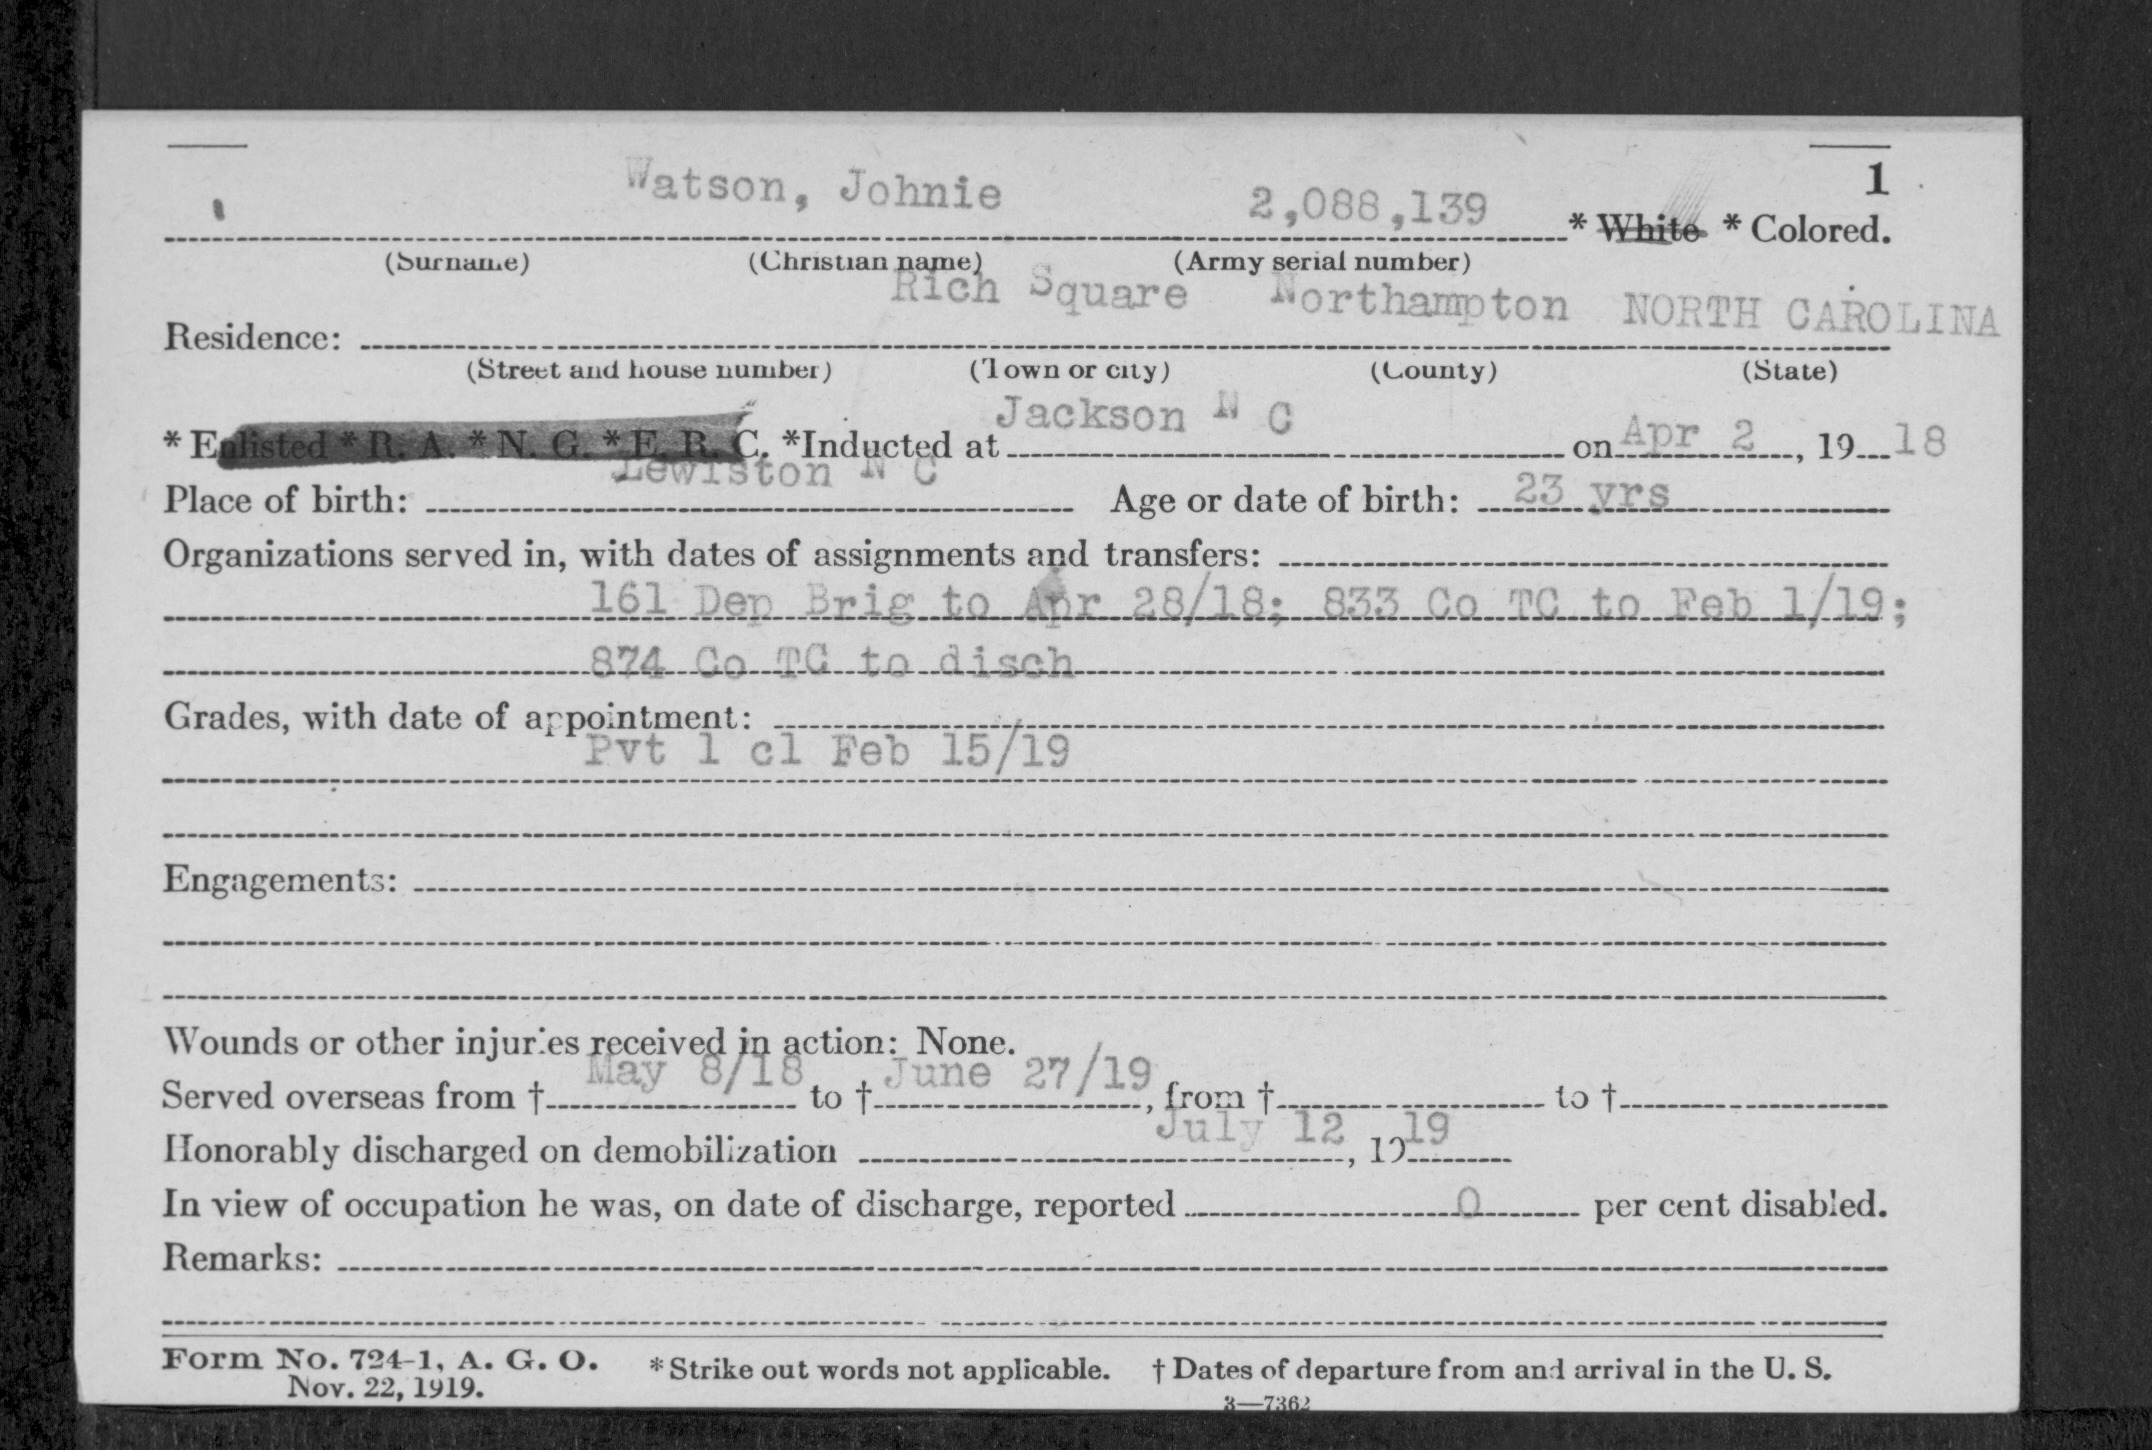 1
Watson, Johnie 2,088,139 * White * Colored.
(Surname) (Christian name) (Army serial number)
Rich Square Northampton NORTH CAROLINA
Residence:
(Street and house number) (Town or city) (County) (State)
* Enlisted * R. A. * N. G. * E. R. C. *Inducted at Jackson N C on Apr 2, 19 18
Place of birth: Lewiston N C Age or date of birth: 23 yrs
Organizations served in, with dates of assignments and transfers:
161 Dep Brig to Apr 28/18; 833 Co TC to Feb 1/19;
874 Co TC to disch
Grades, with date of appointment:
Pvt 1 cl Feb 15/19
Engagements:
Wounds or other injuries received in action: None.
Served overseas from † May 8/18 to † June 27/19, from † to †
Honorably discharged on demobilization July 12, 19 19
In view of occupation he was, on date of discharge, reported 0 per cent disabled.
Remarks:
Form No. 724-1, A. G. O. * Strike out words not applicable. † Dates of departure from and arrival in the U. S.
Nov. 22, 1919.
3—7362